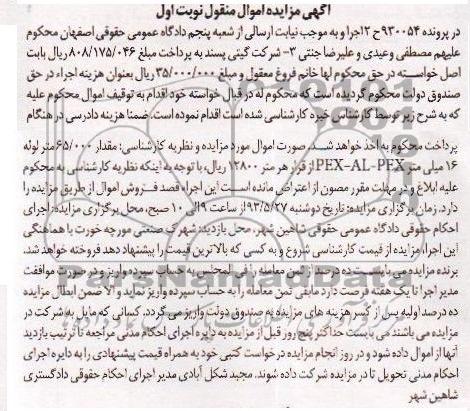 آگهی مزایده اموال منقول نوبت اول
در پرونده ۹۳۰۰۵۴ح۲اجرا و به موجب نیابت ارسالی از شعبه پنجم دادگاه عمومی حقوقی اصفهان محکوم
علیهم مصطفی وعیدی و علیرضا جنتی ۳- شرکت گیتی پسند به پرداخت مبلغ ۸۰۸/۱۷۵/۰۴۶ ریال بابت
اصل خواسته در حق محکوم لها خانم فروغ معقول و مبلغ ۳۵/۰۰۰/۰۰۰ ریال بعنوان هزینه اجراء در حق
صندوق دولت محکوم گردیده است که محکوم له در قبال خواسته خود اقدام به توقیف اموال محکوم علیه
که به شرح زیر توسط کارشناس خبره کارشناسی شده است اقدام نموده است. ضمنا هزینه دادرسی در هنگام
پرداخت محکوم به اخذ خواهد شد. صورت اموال مورد مزایده و نظریه کارشناسی: مقدار ۶۵/۰۰۰ متر لوله
۱۶ میلی متر PEX-AL-PEX از قرار هر متر ۱۲۸۰۰ ریال، با توجه به اینکه نظریه کارشناسی به محکوم
علیه ابلاغ و در مهلت مقرر مصون از اعتراض مانده است این اجرا قصد فروش اموال از طریق مزایده را
دارد. زمان برگزاری مزایده: تاریخ دوشنبه ۹۳/۵/۲۷ از ساعت ۹ الی ۱۰ صبح، محل برگزاری مزایده: اجرای
احکام حقوقی دادگاه عمومی حقوقی شاهین شهر، محل بازدید: شهرک صنعتی مورچه خورت با هماهنگی
این اجرا. مزایده از قیمت کارشناسی شروع و به کسی که بالاترین قیمت را پیشنهاد دهد فروخته خواهد شد.
برنده مزایده می بایست ده درصد از ثمن معامله را فی المجلس به حساب سپرده واریز و در صورت موافقت
مدیر اجرا تا یک هفته فرصت دارد مابقی ثمن معامله را به حساب سپرده واریز نماید و الا ضمن ابطال مزایده
ده درصد اولیه پس از کسر هزینه های مزایده به صندوق دولت واریز می گردد. کسانی که مایل به شرکت در
مزایده می باشند می بایست حداکثر پنج روز قبل از مزایده به دایره اجرای احکام مدنی مراجعه تا ترتیب بازدید
آنها از اموال داده شود و در روز انجام مزایده درخواست کتبی خود به همراه قیمت پیشنهادی را به دایره اجرای
احکام مدنی تحویل تا در مزایده شرکت داده شوند. مجید شکل آبادی مدیر اجرای احکام حقوقی دادگستری
شاهین شهر
ParsNamadData